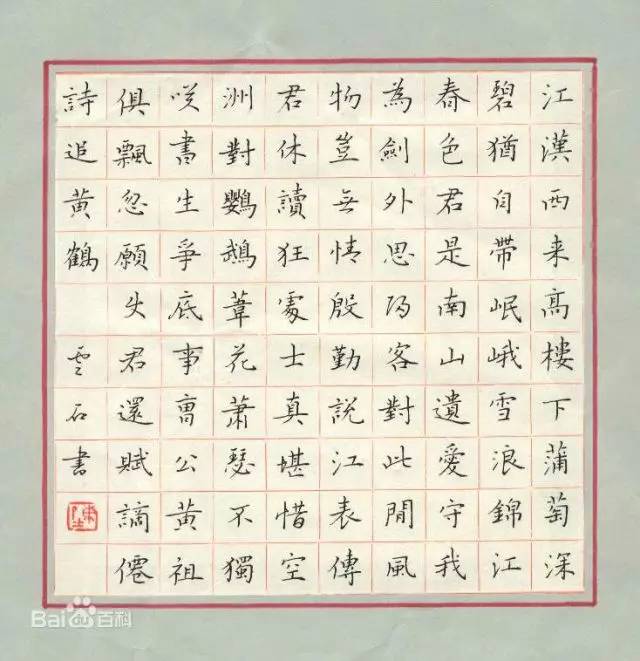 江漢西来高樓下蒲萄深
碧猶自帶岷峨雪浪錦江
春色君是南山遺愛守我
為劍外思歸客對此間風
物豈無情殷勤說江表傳
君休讀狂處士真堪惜空
洲對鸚鵡葦花蕭瑟不獨
咲書生爭底事曹公黃祖
俱飄忽願使君還賦謫僊
詩追黃鶴 雲石書
Bai百科